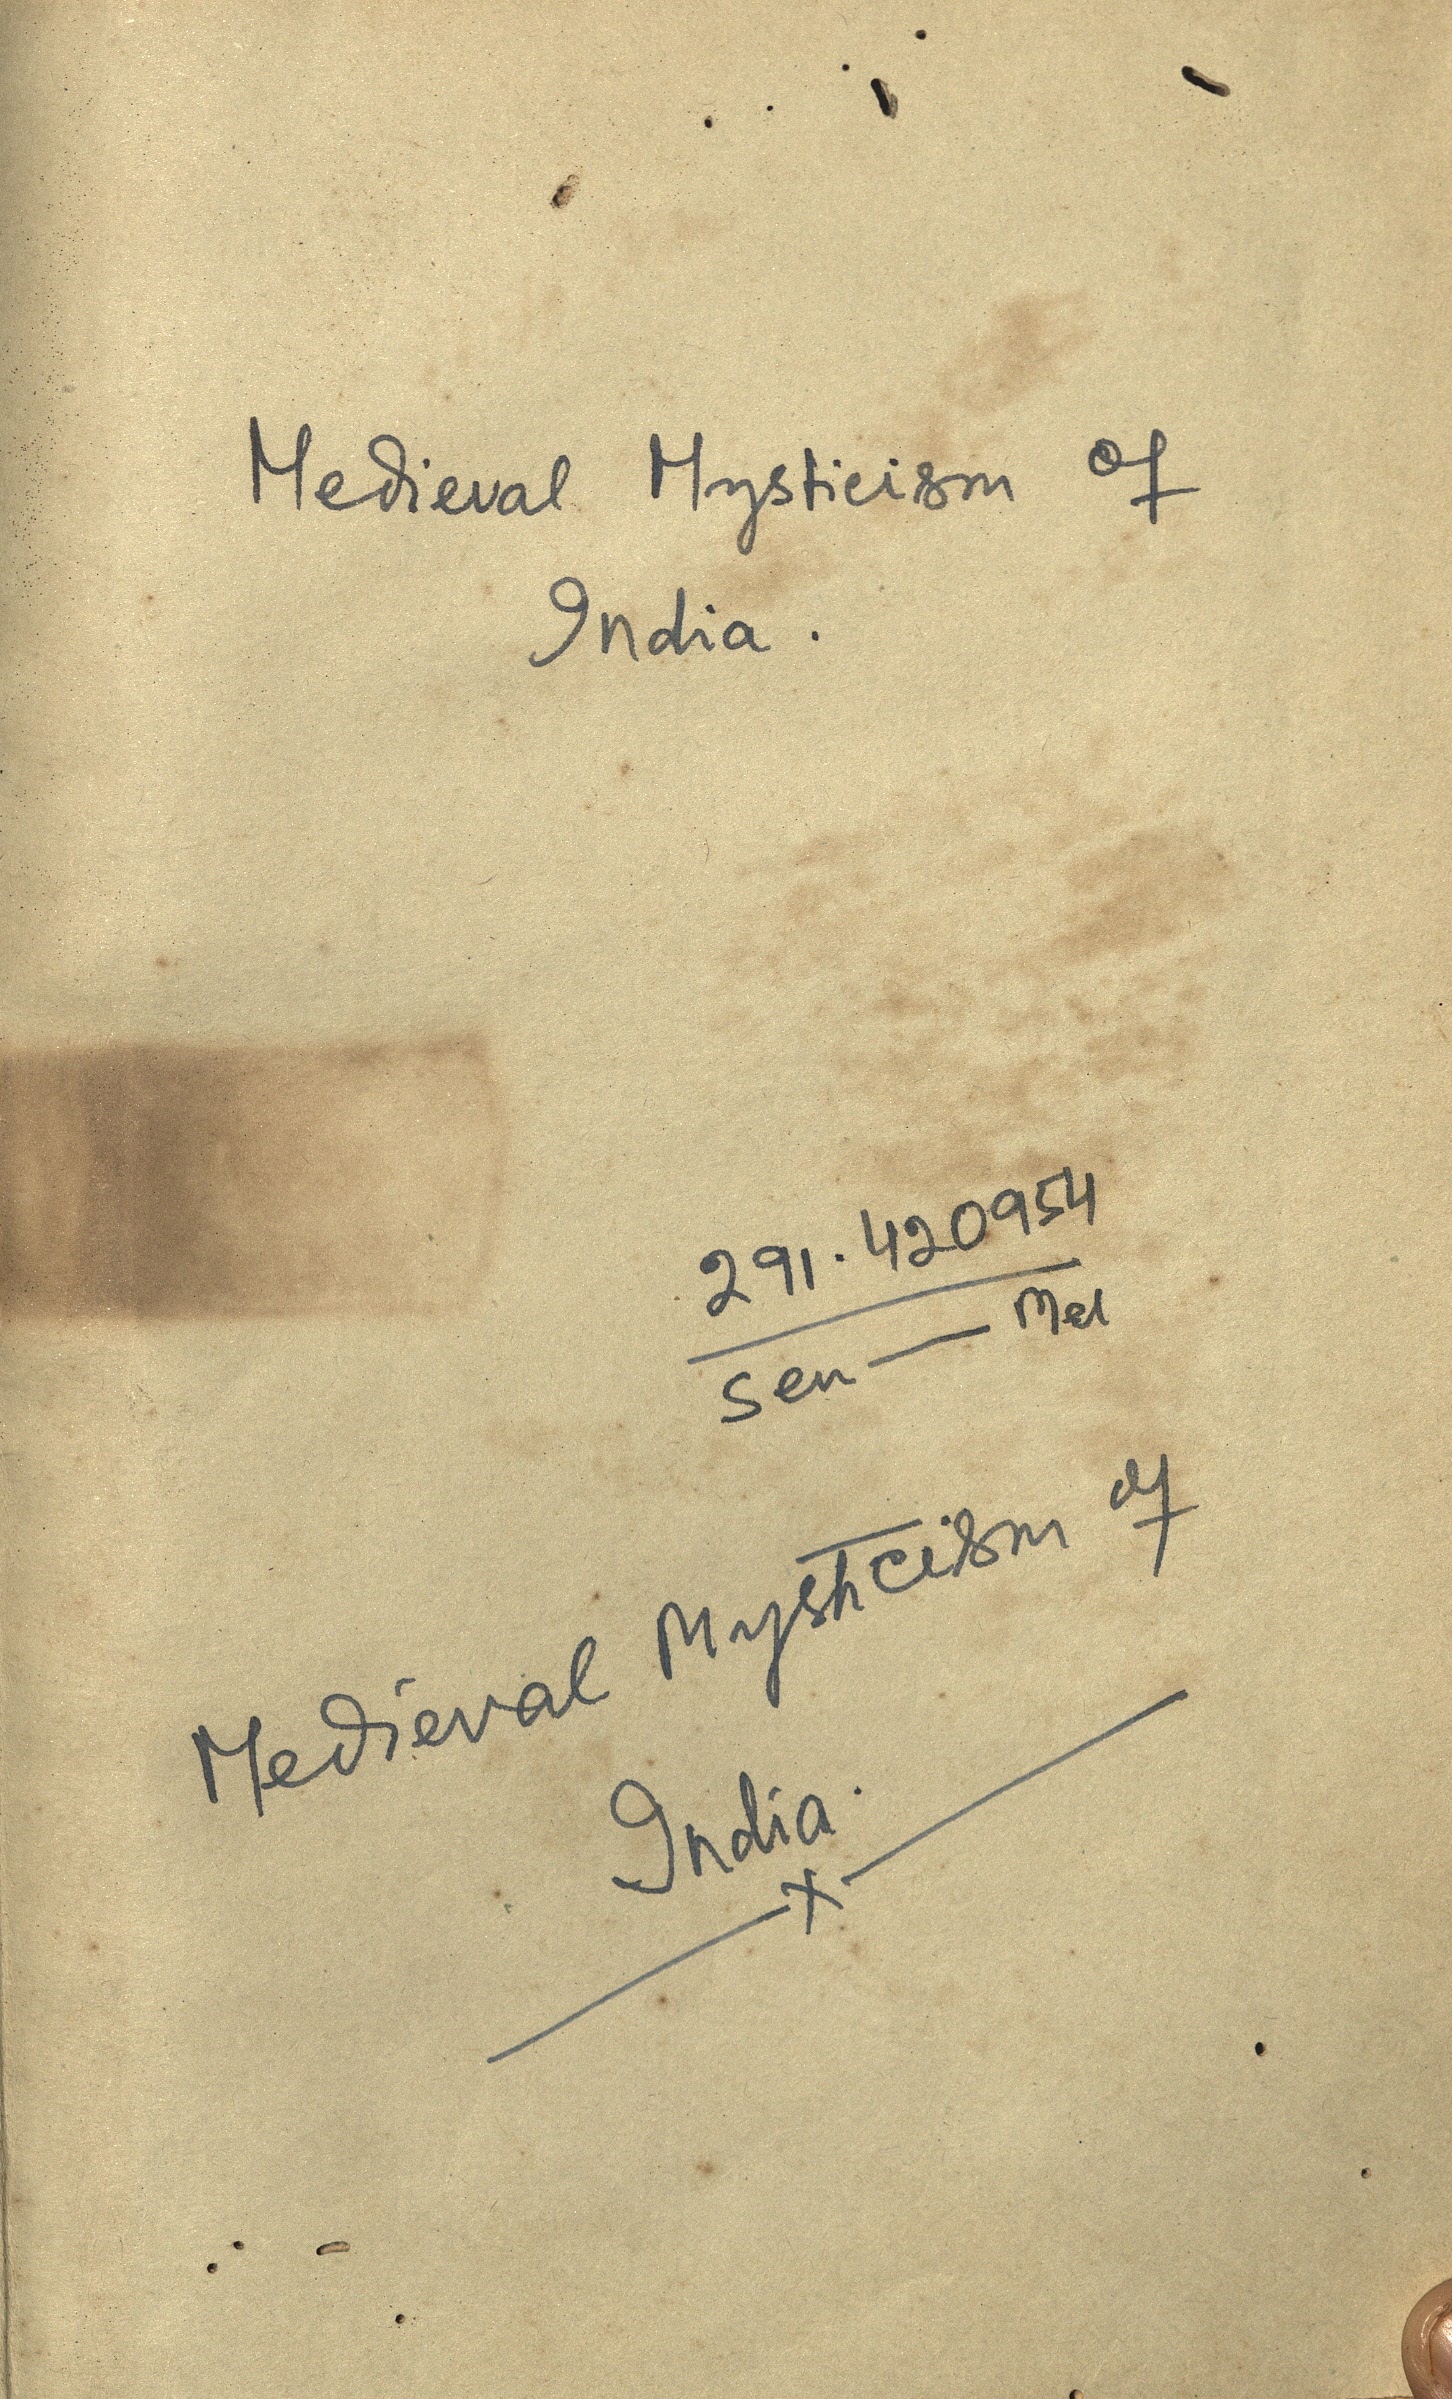 Medieval Mysticism of
India.
291.420954
Sen — Med
Medieval Mysticism of
India.